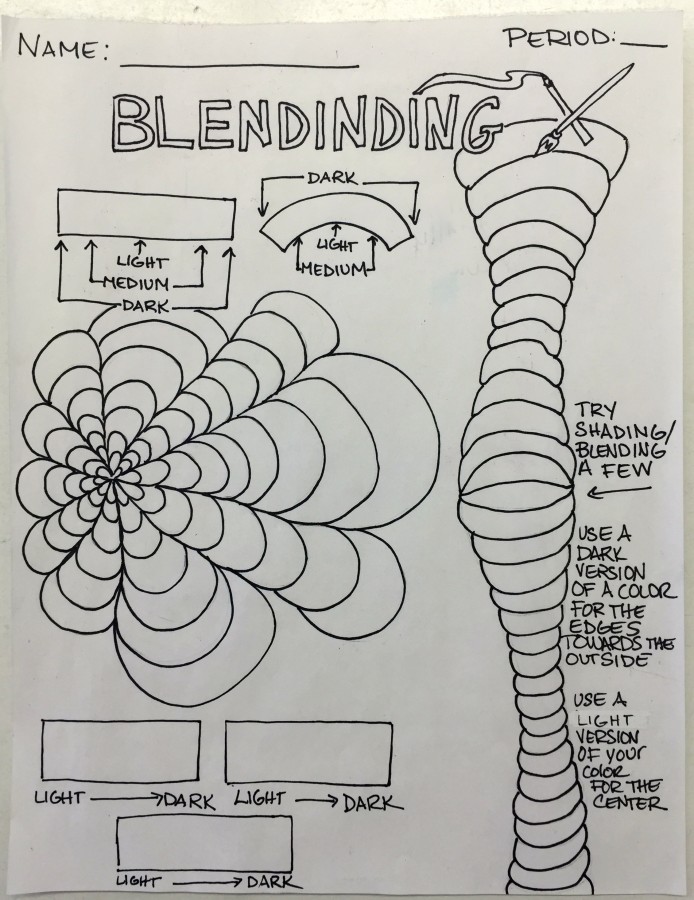 NAME: ____________
PERIOD: ___
BLENDINDING
DARK
LIGHT
MEDIUM
DARK
LIGHT
MEDIUM
TRY
SHADING/
BLENDING
A FEW
USE A
DARK
VERSION
OF A COLOR
FOR THE
EDGES
TOWARDS THE
OUTSIDE
USE A
LIGHT
VERSION
OF YOUR
COLOR
FOR THE
CENTER
LIGHT DARK
LIGHT DARK
LIGHT DARK